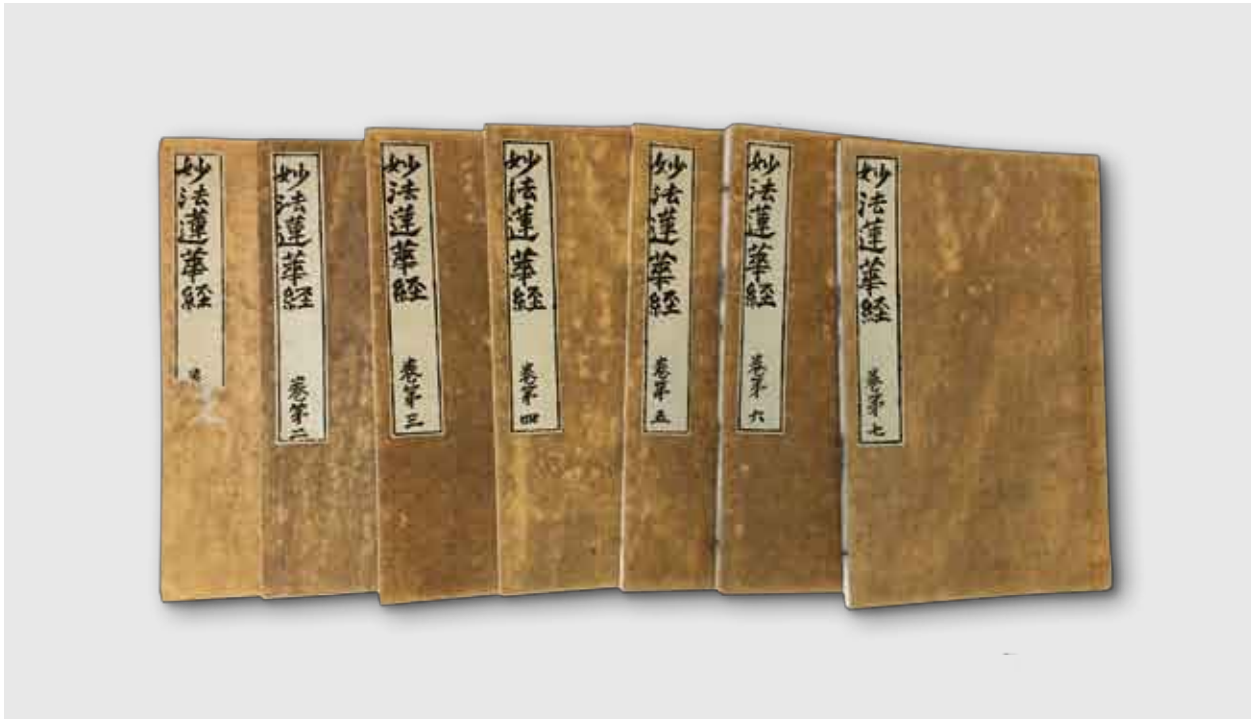 妙法蓮華経
妙法蓮華経 巻第二
妙法蓮華経 巻第三
妙法蓮華経 巻第四
妙法蓮華経 巻第五
妙法蓮華経 巻第六
妙法蓮華経 巻第七